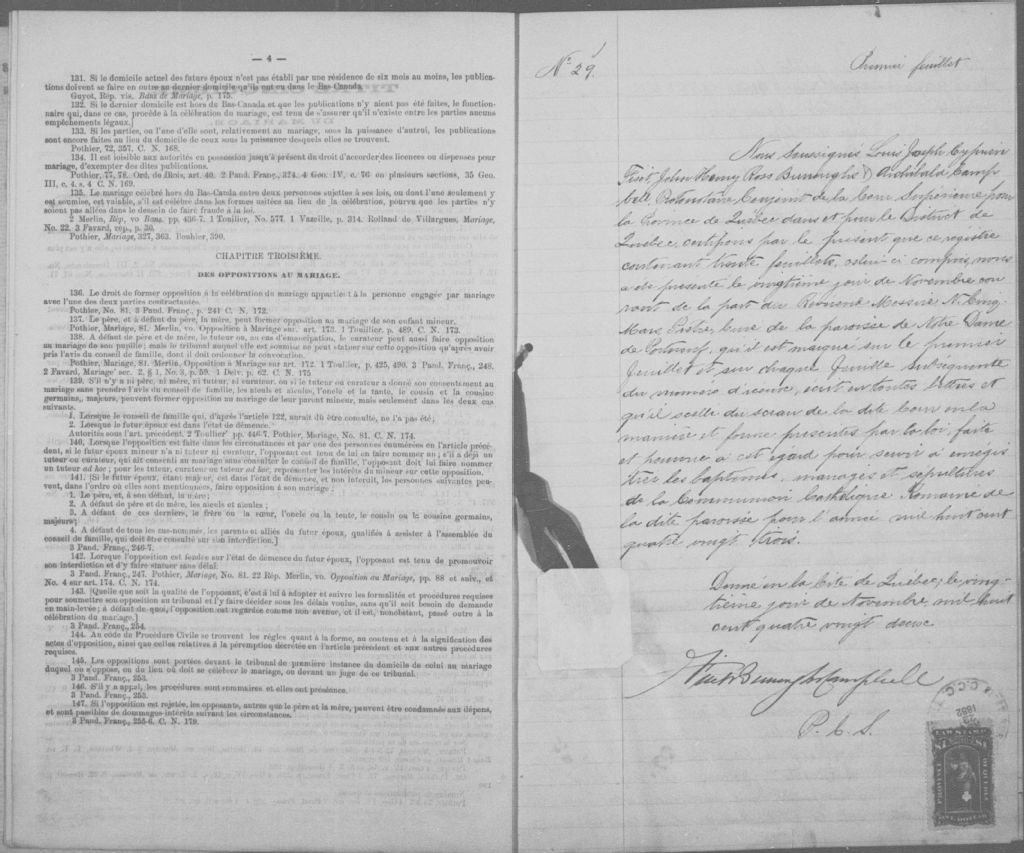 — 4 —
131. Si le domicile actuel des futurs époux n'est pas établi par une résidence de six mois au moins, les publica-
tions doivent se faire en outre au dernier domicile qu'ils ont eu dans le Bas-Canada.
Guyot, Rép. vis. Bans de Mariage, p. 175.
132. Si le dernier domicile est hors du Bas-Canada et que les publications n'y aient pas été faites, le fonction-
naire qui, dans ce cas, procède à la célébration du mariage, est tenu de s'assurer qu'il n'existe entre les parties aucuns
empêchements légaux.]
133. Si les parties, ou l'une d'elle sont, relativement au mariage, sous la puissance d'autrui, les publications
sont encore faites au lieu du domicile de ceux sous la puissance desquels elles se trouvent.
Pothier, 72, 357. C. N. 168.
134. Il est loisible aux autorités en possession jusqu'à présent du droit d'accorder des licences ou dispenses pour
mariage, d'exempter des dites publications.
Pothier, 77, 78. Ord. de Blois, art. 40. 2 Pand. Franç., 324. 4 Geo. IV, c. 76 en plusieurs sections, 35 Geo.
III, c. 4. s. 4 C. N. 169.
135. Le mariage célébré hors du Bas-Canada entre deux personnes sujettes à ses lois, ou dont l'une seulement y
est soumise, est valable, s'il est célébré dans les formes usitées au lieu de la célébration, pourvu que les parties n'y
soient pas allées dans le dessein de faire fraude à la loi.
2 Merlin, Rép, vo Bans. pp. 456-7. 1 Toulier, No. 577. 1 Vazeille, p. 314. Rolland de Villargues, Mariage,
No. 22. 3 Favard, rép., p. 30.
Pothier, Mariage, 327, 363. Bouhier, 390.
CHAPITRE TROISIÈME.
DES OPPOSITIONS AU MARIAGE.
136. Le droit de former opposition à la célébration du mariage appartient à la personne engagée par mariage
avec l'une des deux parties contractantes.
Pothier, No. 81. 3 Pand. Franç., p. 241 C. N. 172.
137. Le père, et à défaut du père, la mère, peut former opposition au mariage de son enfant mineur.
Pothier, Mariage, 81. Merlin, vo. Opposition à Mariage sur. art. 173. 1 Touillier. p. 489. C. N. 173.
138. A défaut de père et de mère, le tuteur ou, au cas d'émancipation, le curateur peut aussi faire opposition
au mariage de son pupille; mais le tribunal auquel elle est soumise ne peut statuer sur cette opposition qu'après avoir
pris l'avis du conseil de famille, dont il doit ordonner la convocation.
Pothier, Mariage, 81. Merlin, Opposition à Mariage sur art. 172. 1 Toulier, p. 425, 490. 3 Pand. Franç., 248.
2 Favard, Mariage' sec. 2, § 1, No. 3, p. 59. 1 Delv. p. 62. C. N. 175
139. S'il n'y a ni père, ni mère, ni tuteur, ni curateur. ou si le tuteur ou curateur a donné son consentement au
mariage sans prendre l'avis du conseil de famille, les aïeuls et aïeules, l'oncle et la tante, le cousin et la cousine
germains, majeurs, peuvent former opposition au mariage de leur parent mineur, mais seulement dans les deux cas
suivants.
1. Lorsque le conseil de famille qui, d'après l'article 122, aurait dû être consulté, ne l'a pas été;
2. Lorsque le futur époux est dans l'état de démence.
Autorités sous l'art. précédent. 2 Toullier pp. 446-7. Pothier, Mariage, No. 81. C. N. 174.
140. Lorsque l'opposition est faite dans les circonstances et par une des personnes énumérées en l'article précé-
dent, si le futur époux mineur n'a ni tuteur ni curateur, l'opposant est tenu de lui en faire nommer un; s'il a déjà un
tuteur ou curateur, qui ait consenti au mariage sans consulter le conseil de famille, l'opposant doit lui faire nommer
un tuteur ad hoc; pour les tuteur, curateur ou tuteur ad hoc, représenter les intérêts du mineur sur cette opposition.
141. [Si le futur époux, étant majeur, est dans l'état de démence, et non interdit, les personnes suivantes peu-
vent, dans l'ordre où elles sont mentionnées, faire opposition à son mariage:
1. Le père, et, à son défaut, la mère;
2. A défaut de père et de mère, les aïeuls et aïeules;
3. A défaut de ces derniers, le frère ou la sœur, l'oncle ou la tante, le cousin ou la cousine germains,
majeurs;
4. A défaut de tous les sus-nommés, les parents et alliés du futur époux, qualifiés à assister à l'assemblée du
conseil de famille, qui doit être consulté sur son interdiction.]
3 Pand. Franç., 246-7.
142. Lorsque l'opposition est fondée sur l'état de démence du futur époux, l'opposant est tenu de promouvoir
son interdiction et d'y faire statuer sans délai.
3 Pand. Franç., 247. Pothier, Mariage, No. 81. 22 Rép. Merlin, vo. Opposition au Mariage, pp. 88 et suiv., et
No. 4 sur art. 174. C. N. 174.
143. [Quelle que soit la qualité de l'opposant, c'est à lui à adopter et suivre les formalités et procédures requises
pour soumettre son opposition au tribunal et l'y faire décider sous les délais voulus, sans qu'il soit besoin de demande
en main-levée; à défaut de quoi, l'opposition est regardée comme non avenue, et il est, nonobstant, passé outre à la
célébration du mariage.]
3 Pand. Franç., 254.
144. Au code du Procédure Civile se trouvent les règles quant à la forme, au contenu et à la signification des
actes d'opposition, ainsi que celles relatives à la péremption décrétée en l'article précédent et aux autres procédures
requises.
145. Les oppositions sont portées devant le tribunal de première instance du domicile de celui au mariage
duquel on s'oppose, ou du lieu où doit se célébrer le mariage, ou devant un juge de ce tribunal.
3 Pand. Franç., 253.
146. S'il y a appel, les procédures sont sommaires et elles ont préséance.
3 Pand. Franç., 253.
147. Si l'opposition est rejetée, les opposants, autres que le père et la mère, peuvent être condamnés aux dépens,
et sont passibles de dommages-intérêts suivant les circonstances.
3 Pand. Franç., 255-6. C. N. 179.
No. 29.
Premier feuillet
Nous Soussignés Louis Joseph Cyprien
Fiset, John Henry Ross Burroughs & Archibald Camp
bell, Protonotaire Conjoint de la Cour Supérieure pour
la Province de Québec dans et pour le District de
Québec, certifions par le présent que ce registre
contenant trente feuillets, celui-ci compris, nous
a été présenté le vingtième jour de Novembre cou
rant de la part du Révérend Messire
Marc, Prêtre, Curé de la paroisse de Notre Dame
de Portneuf, qu'il est marqué sur le premier
feuillet et sur chaque feuille subséquente
du numéro d'iceux, écrit en toutes lettres et
qu'il scellé du sceau de la dite Cour en la
manière et forme prescrites par la loi, faite
et pourvue à cet égard pour servir à enregis
trer les baptêmes, mariages et sépultures
de la Communion Catholique Romaine de
la dite paroisse pour l'année mil huit cent
quatre vingt trois.
Donné en la Cité de Québec, le ving-
tième jour de Novembre mil huit
cent quatre vingt deux
Fiset Burroughs Campbell
P. C. S.
1882
LAW STAMP
$1 $1
PROVINCE OF QUEBEC
ONE DOLLAR